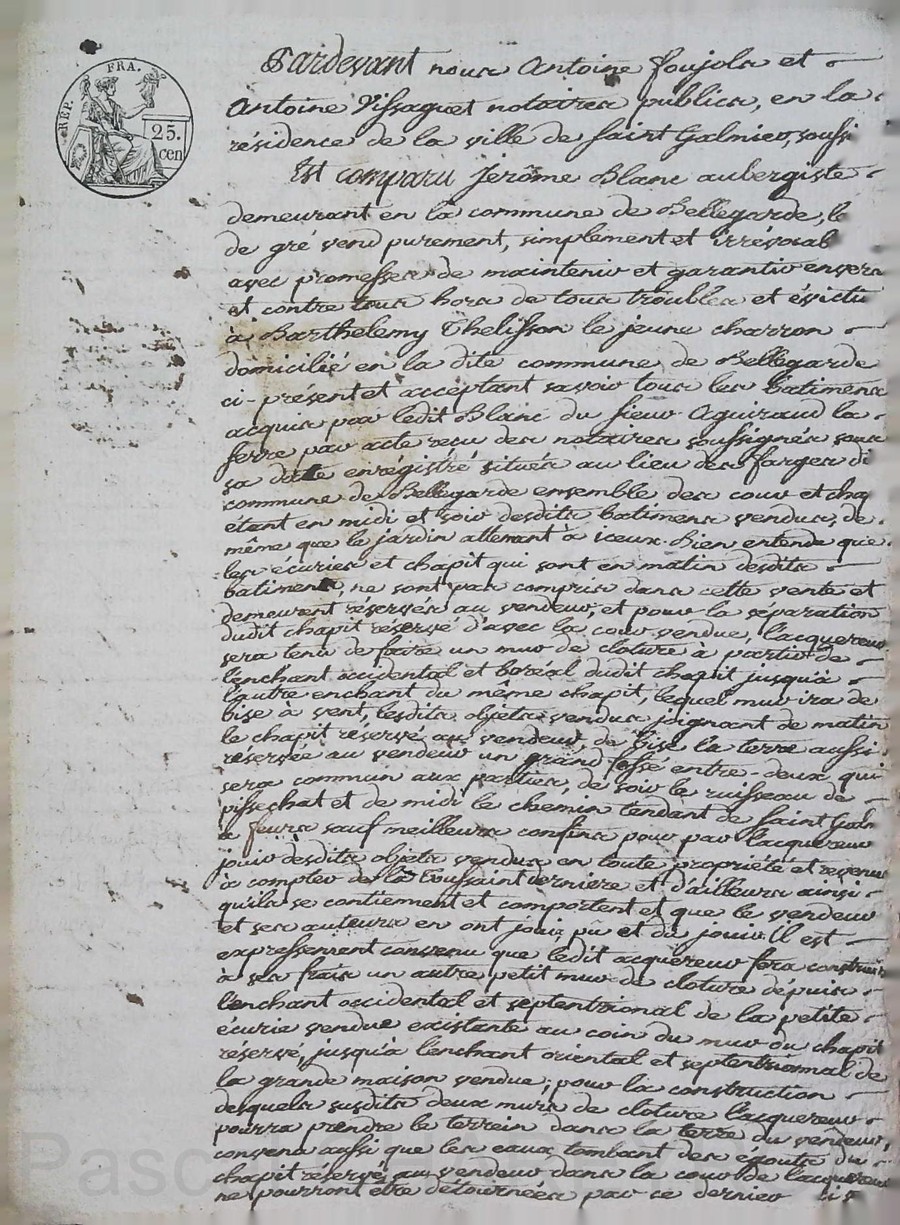 REP. FRA.
25.
cen
Pardevant nous Antoine foujols et
Antoine Vissaguet notaires publics, en la
résidence de la ville de Saint Galmier, souss
Est comparu Jerôme Blanc aubergiste
demeurant en la commune de Bellegarde, le
de gré vend purement, simplement et irrévocab
avec promesses de maintenir et garantir envers
et contre tous hors de tous troubles et évictio
à Barthelemy Thelisson le jeune charron
domicilié en la dite commune de Bellegarde
ci-présent et acceptant savoir tous les batimens
acquis par ledit Blanc du sieur Aguiraud la
serve par acte reçu des notaires soussignés sous
sa date enrégistré situés au lieu des farges di
commune de Bellegarde ensemble des cour et chap
etant en midi et soir desdits batimens vendus, de
même que le jardin attenant à iceux. Bien entendu que
les écuries et chapit qui sont en matin desdits
batimens, ne sont pas compris dans cette vente et
demeurent réservés au vendeur, et pour la séparation
dudit chapit réservé d'avec la cour vendue, l'acquereur
sera tenu de faire un mur de cloture à partir de
l'enchant occidental et boréal dudit chapit jusqu'à
l'autre enchant du même chapit, lequel mur ira de
bise à vent, lesdits objets vendus joignant de matin
le chapit réservé au vendeur, de bise la terre aussi
réservée au vendeur un grand fossé entre-deux qui
sera commun aux parties, de soir le ruisseau de
pissechat et de midi le chemin tendant de Saint Galm
à feurs sauf meilleurs confins pour par l'acquereur
jouir desdits objets vendus en toute propriété et revenu
à compter de la Toussaint derniere et d'ailleurs ainsi
qu'ils se contiennent et comportent et que le vendeur
et ses auteurs en ont joui, pu et du jouir. Il est
expressement convenu que ledit acquereur fera construire
à ses frais un autre petit mur de cloture dépuis
l'enchant occidental et septentrional de la petite
écurie vendue existante au coin du mur du chapit
réservé, jusqu'à l'enchant oriental et septentrional de
la grande maison vendue; pour la construction
desquels susdits deux murs de cloture l'acquereur
pourra prendre le terrein dans la terre du vendeur,
convenu aussi que les eaux tombant des égouts du
chapit réservé au vendeur dans la cour de l'acquereur
ne pourront être détournées par ce dernier